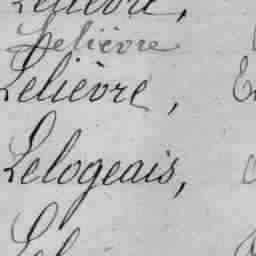 Lelièvre,
Lelièvre
Lelièvre,
Lelogeais,